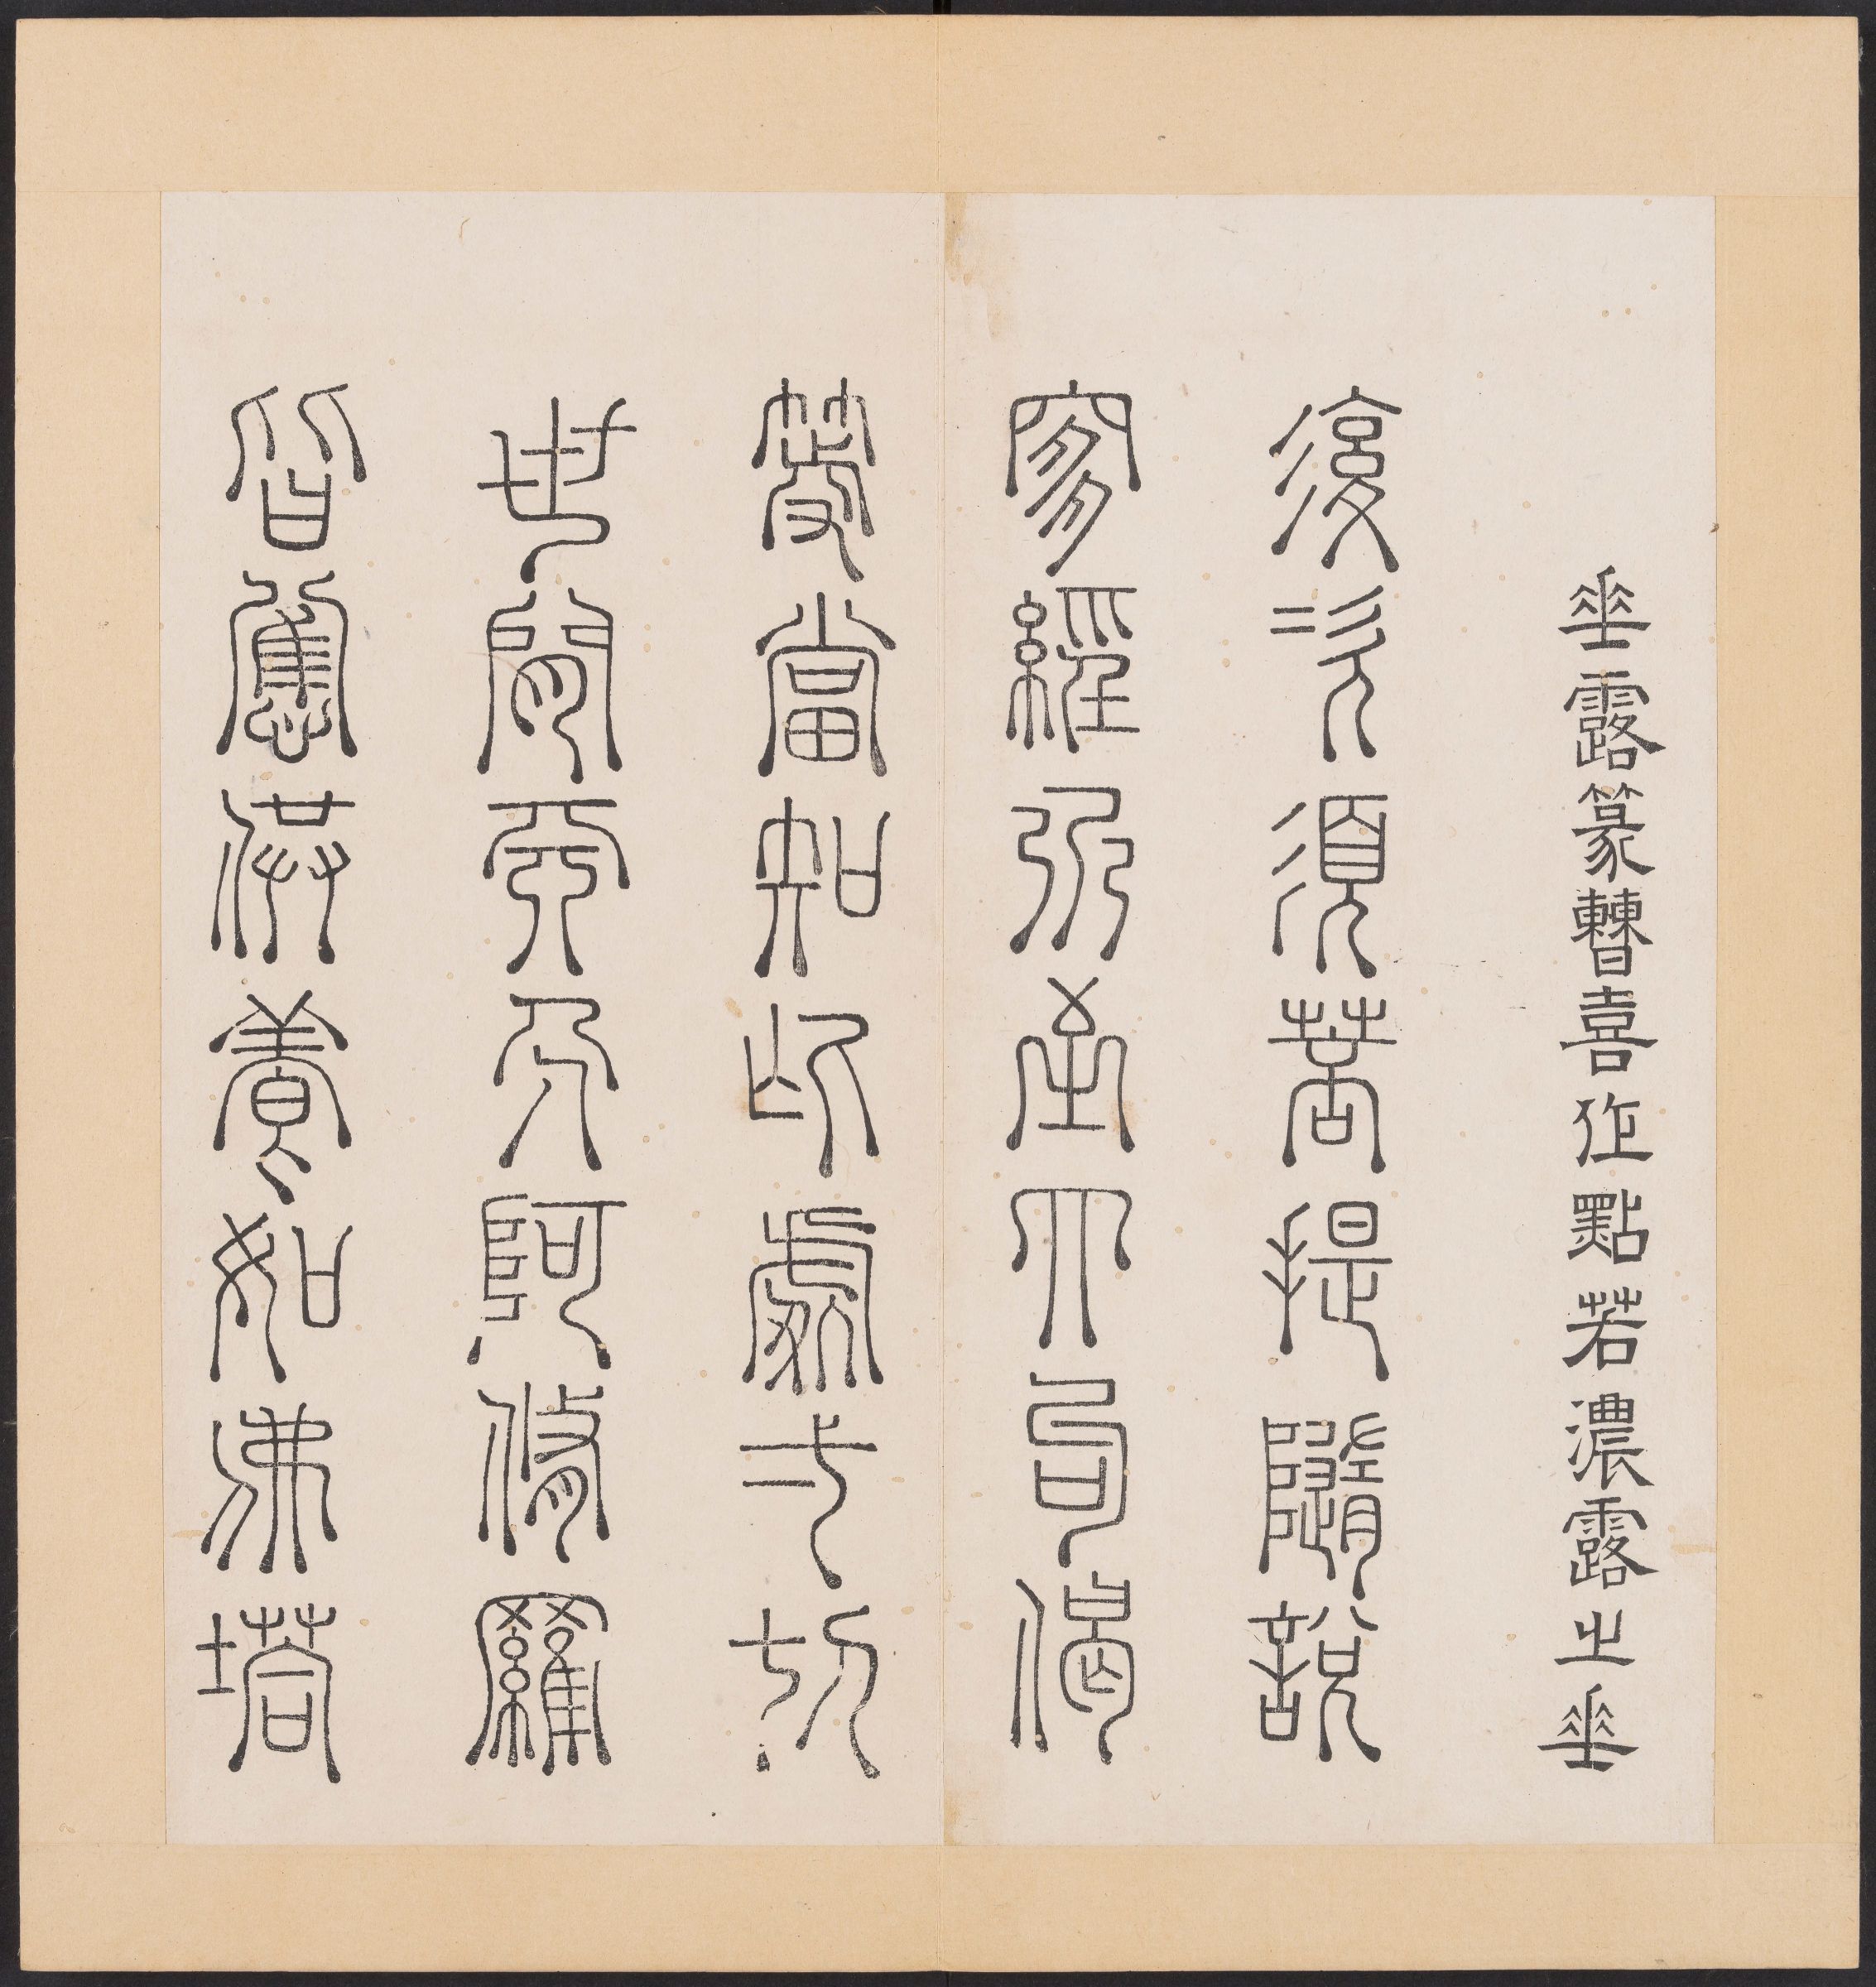 垂露篆曹喜作點若濃露之垂
復次須菩提隨說
是經乃至四句偈
等當知此處一切
世間天人阿修羅
皆應供養如佛塔